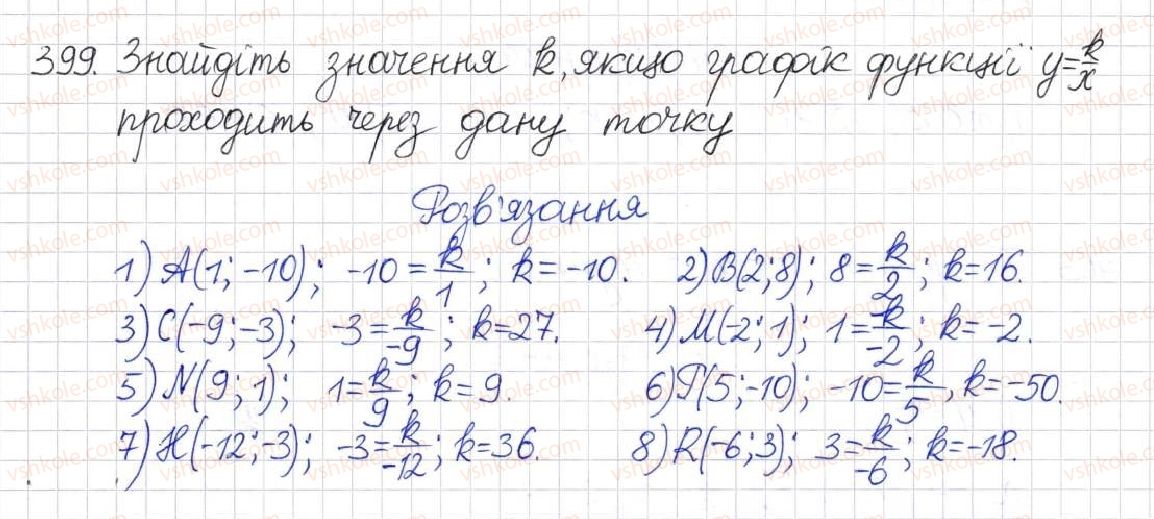 399. Знайдіть значення k, якщо графік функції y=k/x
проходить через дану точку
Розв'язання
1) A(1; -10); -10 = k/1; k = -10. 2) B(2; 8); 8 = k/2; k = 16.
3) C(-9; -3); -3 = k/-9; k = 27. 4) M(-2; 1); 1 = k/-2; k = -2.
5) N(9; 1); 1 = k/9; k = 9. 6) P(5; -10); -10 = k/5, k = -50.
7) H(-12; -3); -3 = k/-12; k = 36. 8) R(-6; 3); 3 = k/-6; k = -18.